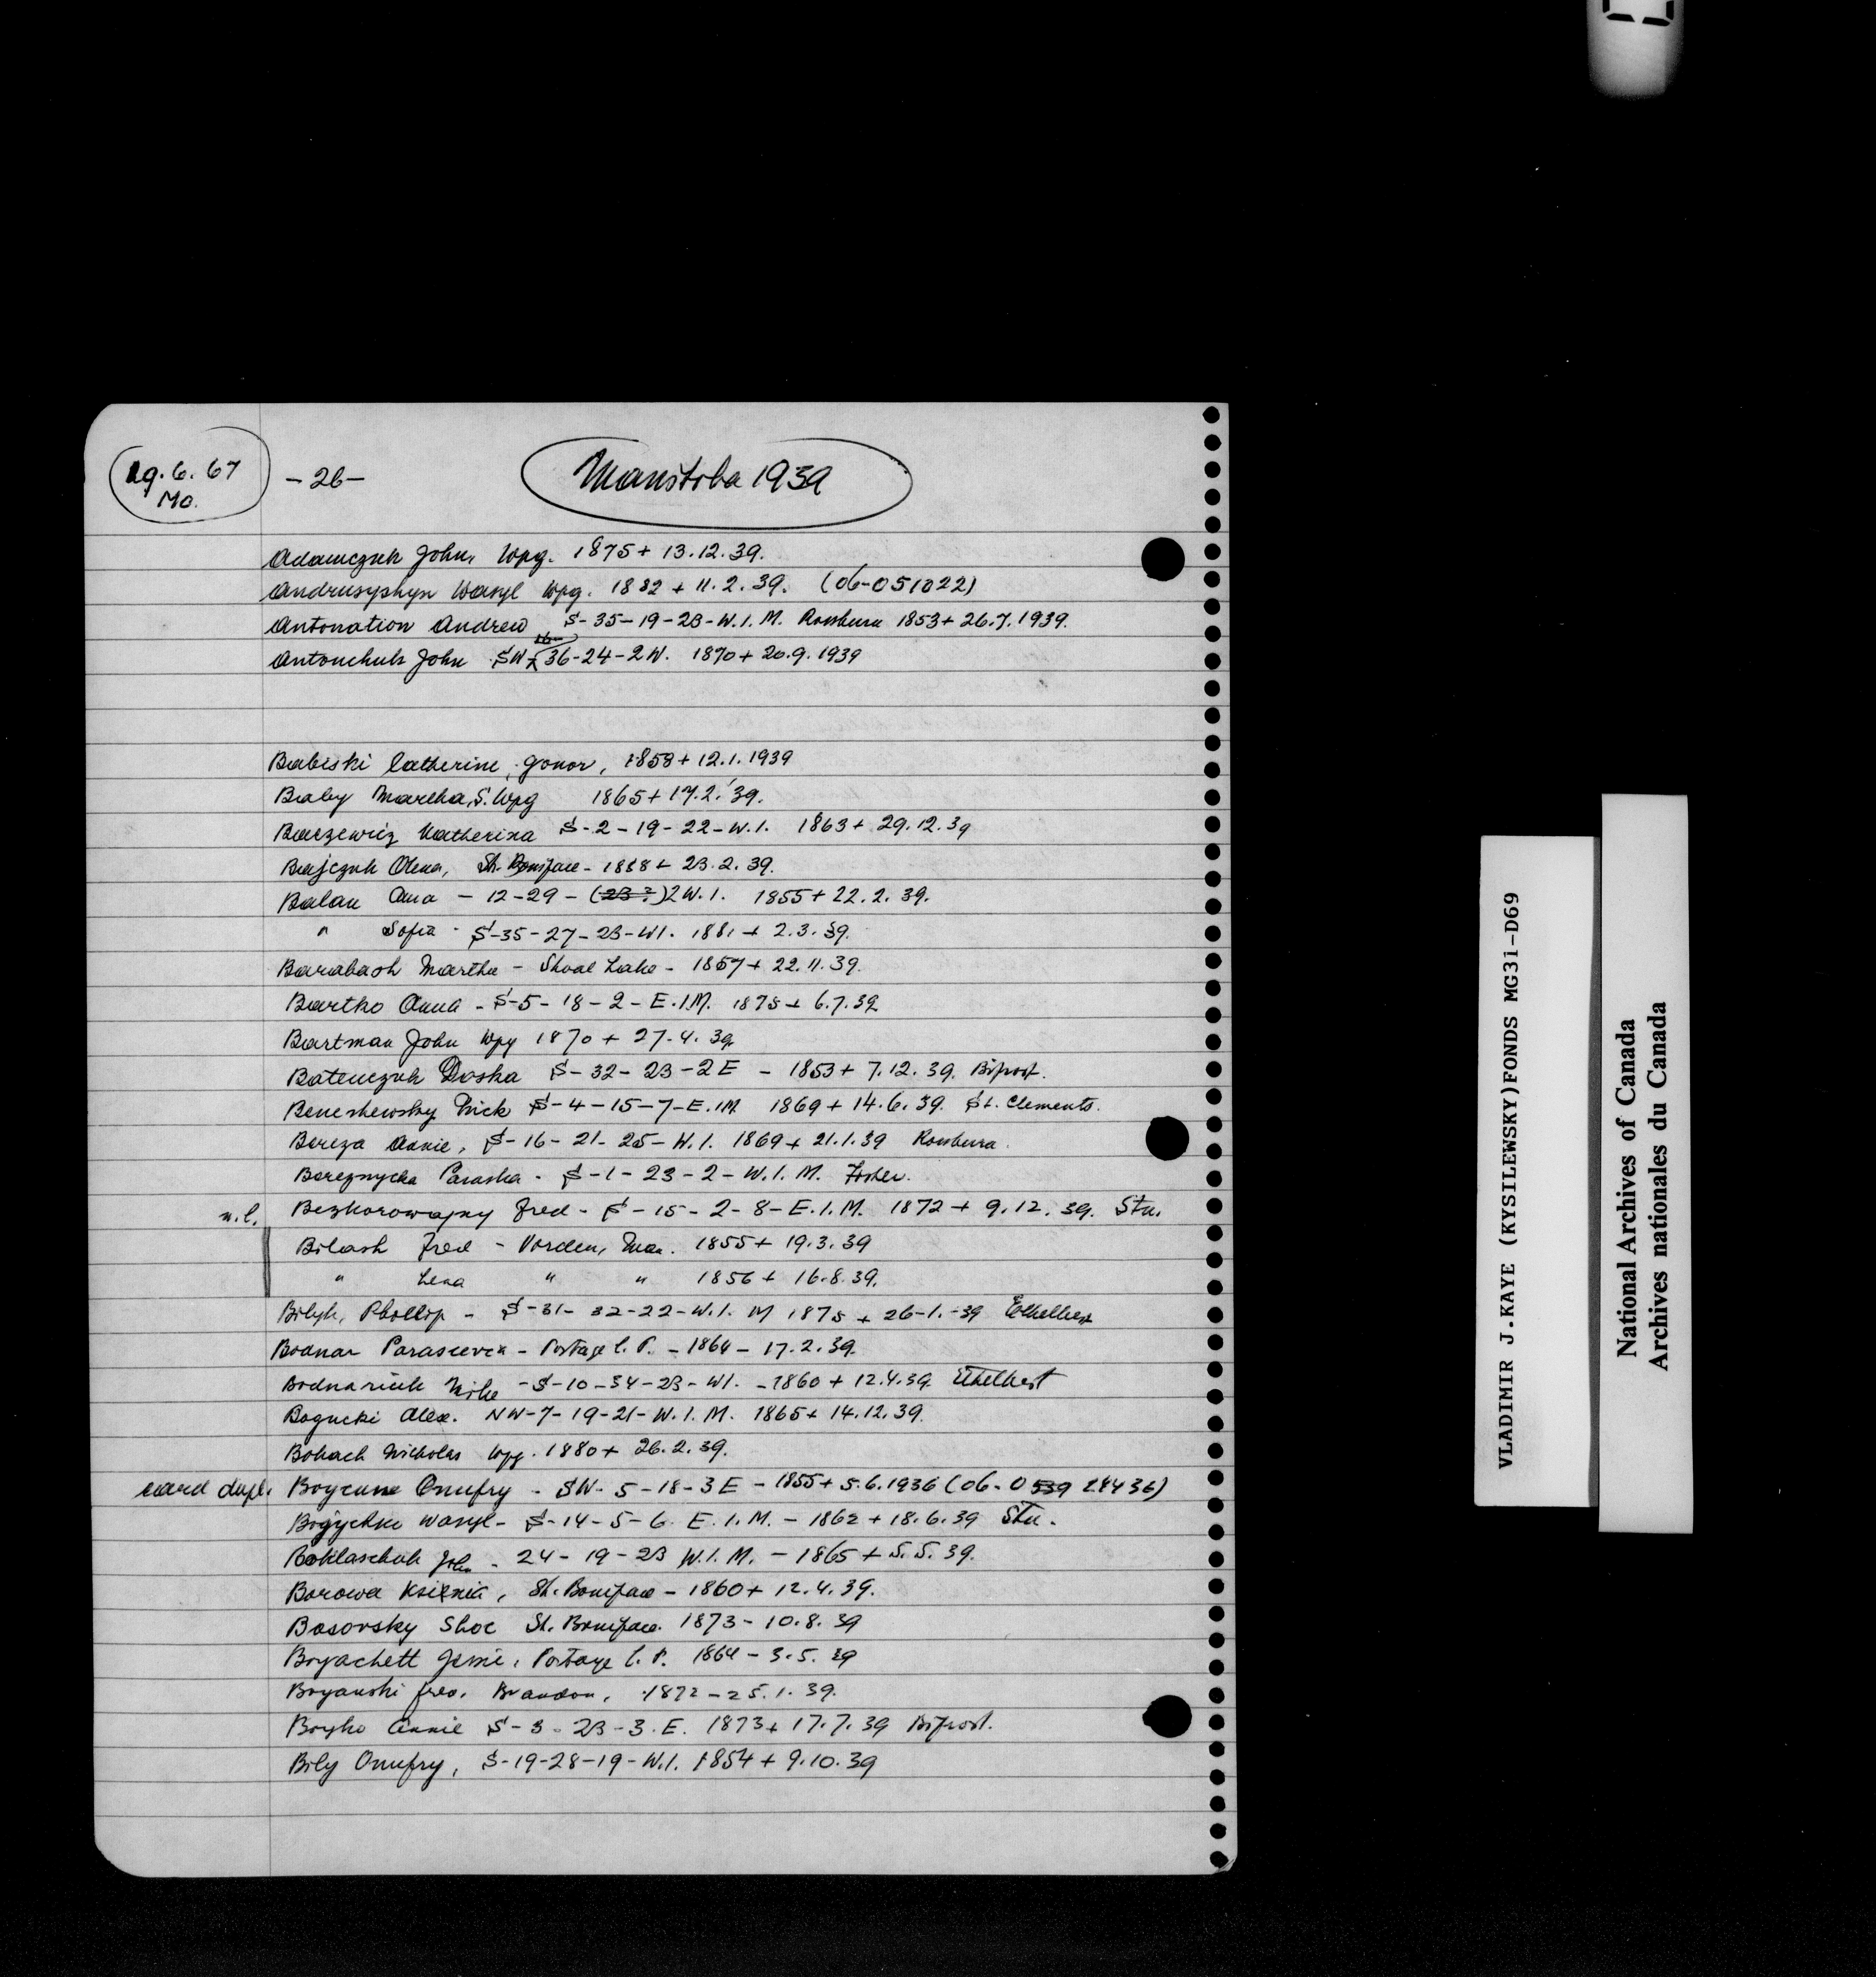 29.6.67
Mo.
-26-
Manitoba 1939
Adamczuk John, Wpg. 1875+ 13.12.39.
Andrusyshyn Wasyl Wpg. 1882 + 11.2.39. (06-051022)
Antonation Andrew S-35-19-23-W.1.M. Rossburn 1853+ 26.7.1939.
Antonchuk John SW-36-24-2W. 1870+ 20.9.1939
Babiski Catherine, Gonor, 1858+ 12.1.1939
Baby Martha, S. Wpg 1865+ 17.2.'39.
Baczewicz Katherina S-2-19-22-W.1. 1863+ 29.12.39
Bajczuk Olena, St. Boniface - 1858+ 23.2.39.
Balan Ana - 12-29-(23?)2W.1. 1855+ 22.2.39.
" Sofia - S-35-27-23-W1. 1881 + 2.3.39.
Barabash Martha - Shoal Lake - 1857+ 22.11.39.
Bartko Anna - S-5-18-2-E.1M. 1875+ 6.7.39
Bartman John Wpg 1870 + 27.4.39.
Batenczuk Doska S-32-23-2E - 1853+ 7.12.39. Bifrost.
Beneshewsky Nick S-4-15-7-E.1M 1869+14.6.39. St. Clements.
Bereza Annie, S-16-21-25-W.1. 1869+ 21.1.39 Rossburn.
Bereznycka Paraska - S-1-23-2-W.1.M. Fisher.
n.l. Bezkorowajny Fred - S-15-2-8-E.1.M. 1872 + 9.12.39. Stu.
Bilash Fred - Vorden, Man. 1855+ 19.3.39
" Lena " " 1856 + 16.8.39.
Bilyk, Phollip - S-31-32-22-W.1.M 1875 + 26-1.-39 Ethelbert
Bodnar Parascevia - Portage l. P. - 1864 - 17.2.39.
Bodnariuk Mike - S-10-34-23-W1. - 1860 + 12.4.39 Ethelbert
Bogucki Alex. NW-7-19-21-W.1.M. 1865+ 14.12.39.
Bohach Nicholas Wpg. 1880+ 26.2.39.
card dupl. Boycun Onufry - SW-5-18-3E - 1855+ 5.6.1936 (06-0539 28436)
Wasyl - S-14-5-6 E.1.M. - 1862 + 18.6.39 Stu.
Boklaschuk John - 24-19-23 W.1.M. - 1865 + 5.5.39.
Borowa Ksienia, St. Boniface - 1860+ 12.4.39.
Bosorsky Shoe St. Boniface. 1873 - 10.8.39
Boyachett Jessie, Portage l. P. 1864 - 3.5.39
Boyanski Geo. Brandon, 1872 - 25.1.39.
Boyko Annie S-3-23-3.E. 1873+ 17.7.39 Bifrost.
Bily Onufry, S-19-28-19-W.1. 1854 + 9.10.39
VLADIMIR J.KAYE (KYSILEWSKY)FONDS MG31-D69
National Archives of Canada
Archives nationales du Canada